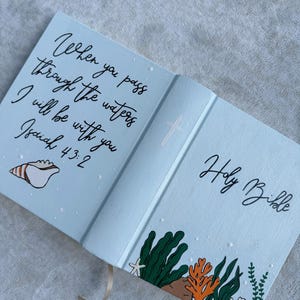 When you pass
through the waters
I will be with you
Isaiah 43:2
Holy Bible